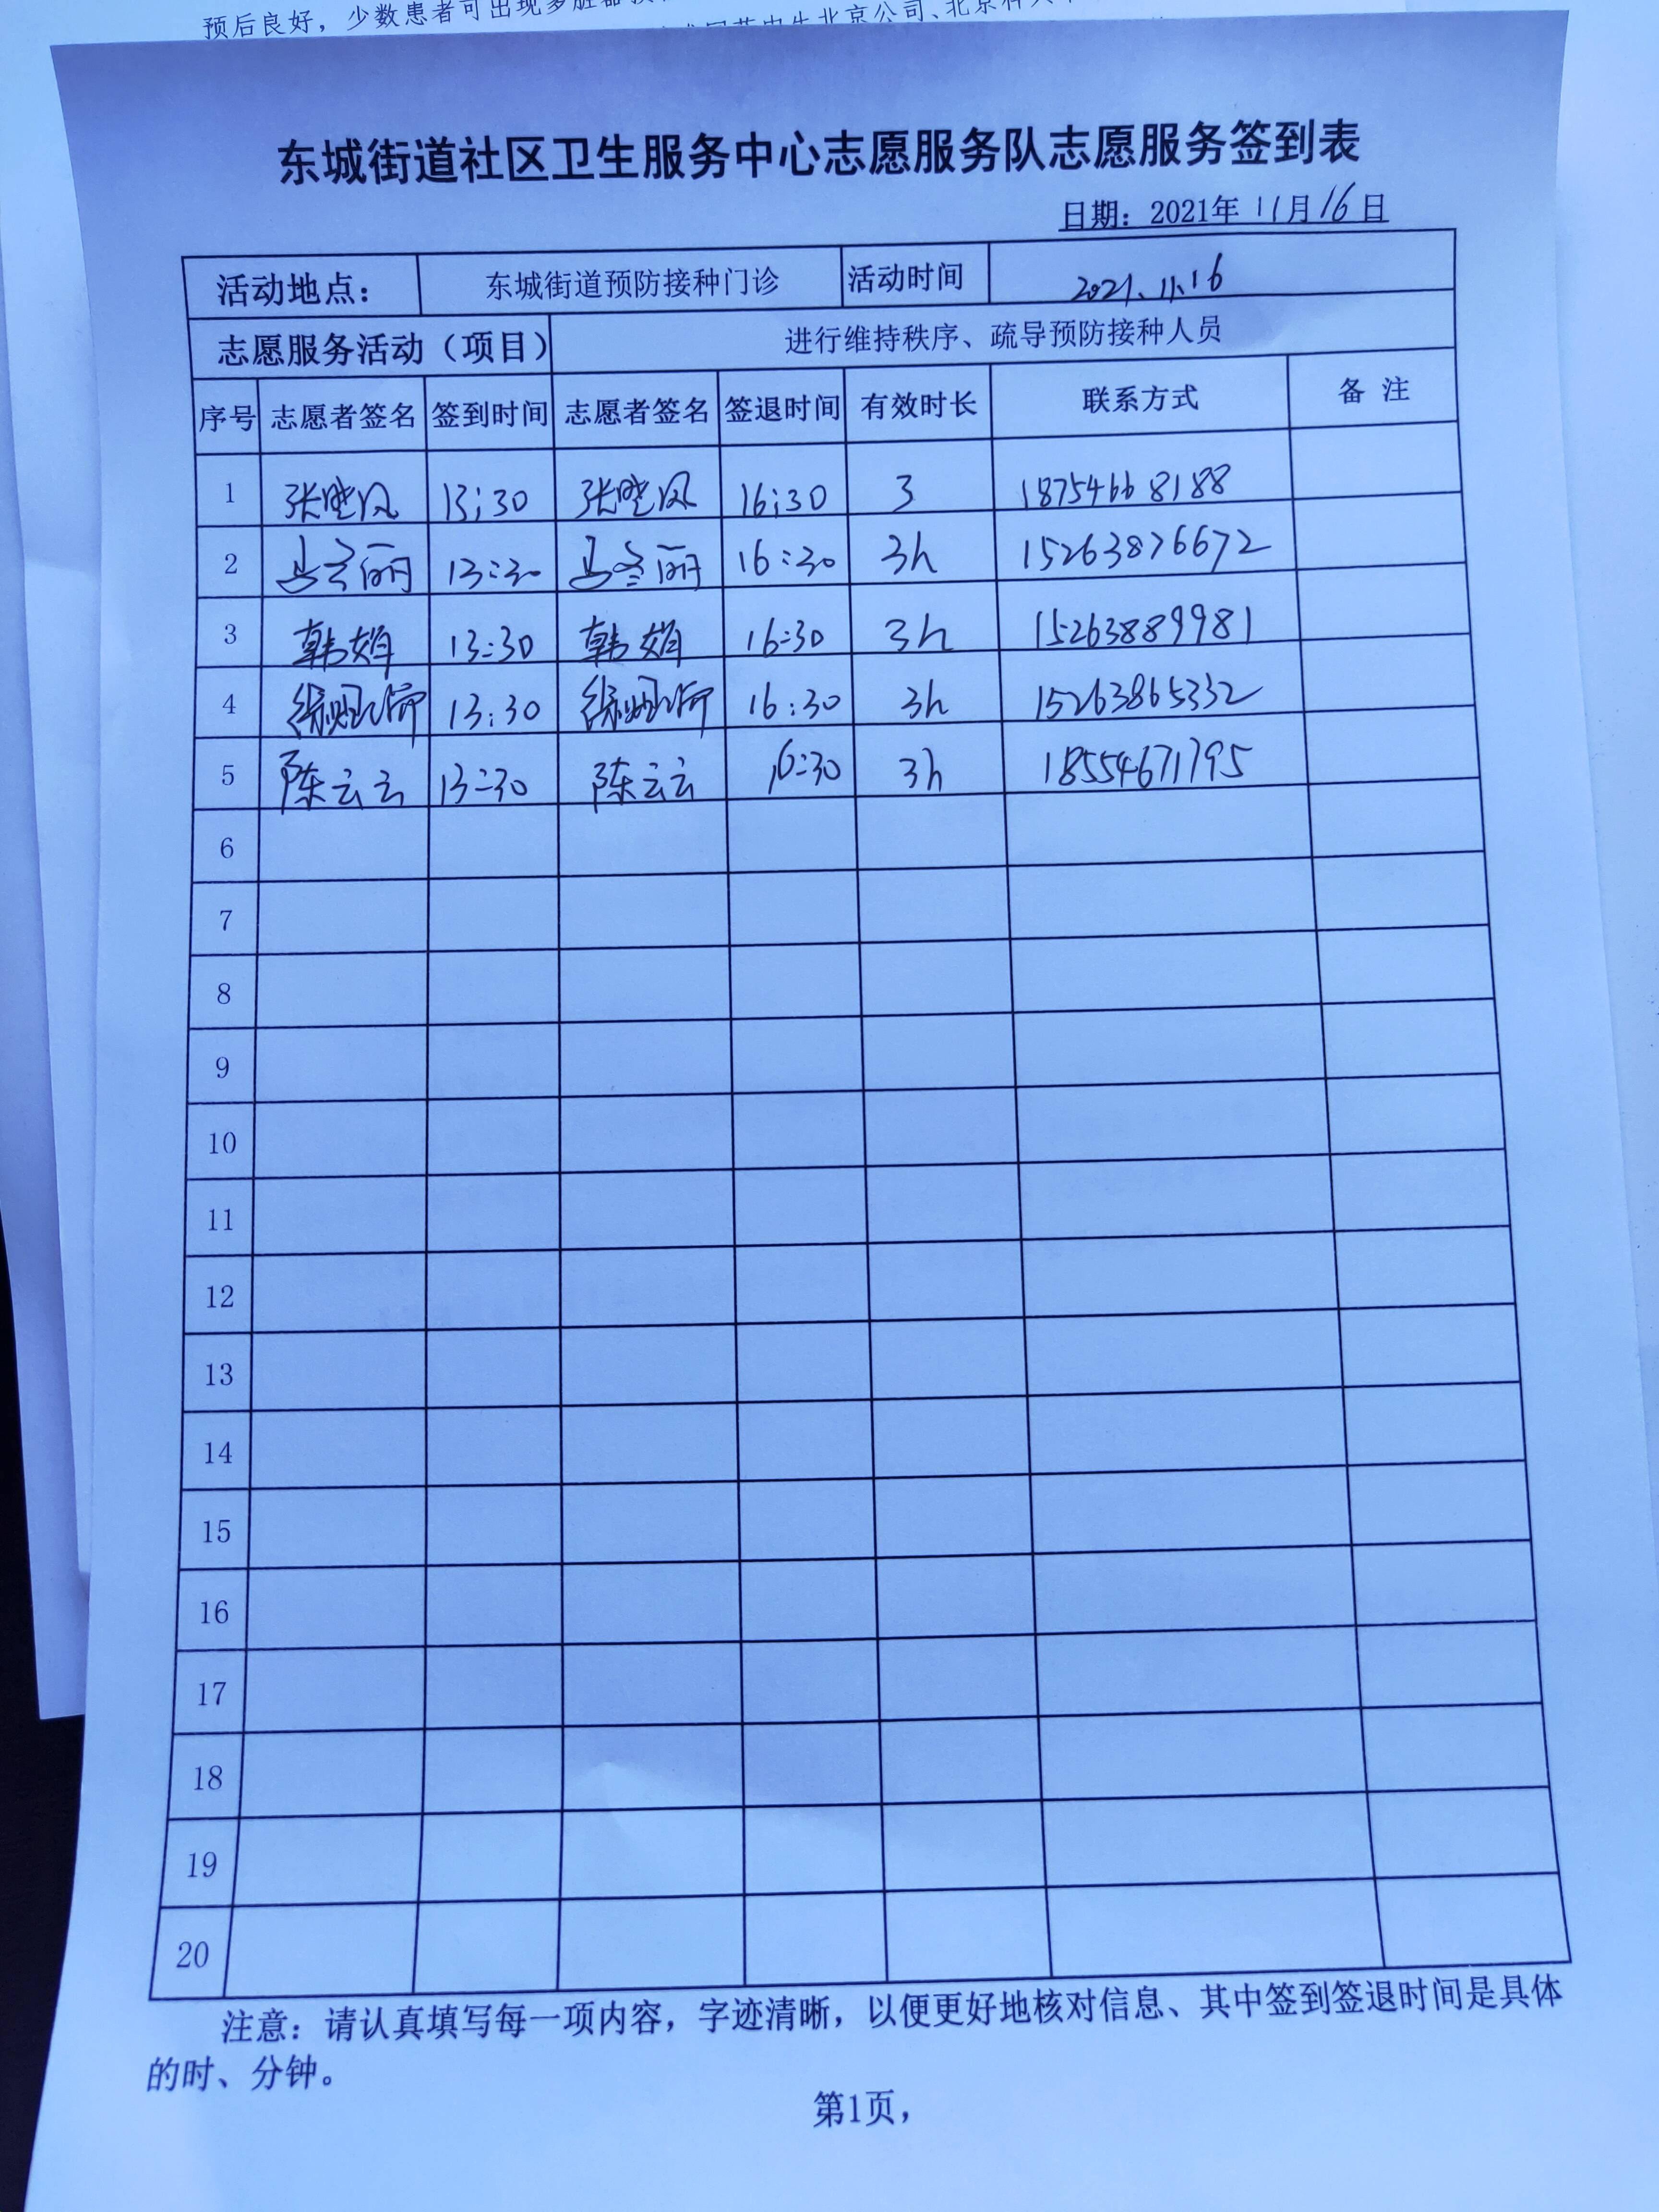 预后良好，少数患者可出现多脏器
北京公司、北京科
东城街道社区卫生服务中心志愿服务队志愿服务签到表
日期：2021年 11月16日
活动地点： 东城街道预防接种门诊 活动时间 2021.11.16
志愿服务活动（项目） 进行维持秩序、疏导预防接种人员
序号 志愿者签名 签到时间 志愿者签名 签退时间 有效时长 联系方式 备 注
1 张晓风 13:30 张晓风 16:30 3 18754668188
2 13:30 16:30 3h 15263876672
3 韩娟 13:30 韩娟 16:30 3h 15263889981
4 13:30 16:30 3h 15263865332
5 陈云云 13:30 陈云云 16:30 3h 18554671795
6
7
8
9
10
11
12
13
14
15
16
17
18
19
20
注意：请认真填写每一项内容，字迹清晰，以便更好地核对信息、其中签到签退时间是具体
的时、分钟。
第1页，